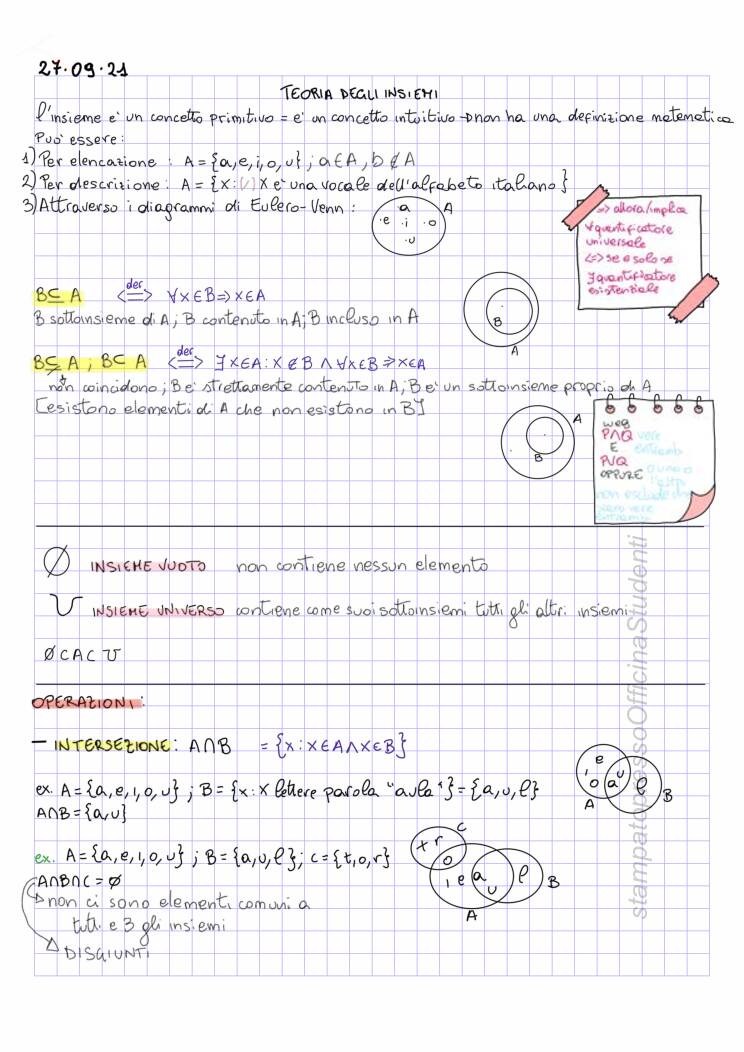 27.09.21
TEORIA DEGLI INSIEMI
l'insieme e' un concetto primitivo = e' un concetto intuitivo → non ha una definizione matematica
Puo' essere:
1) Per elencazione : A = {a,e,i,o,u} ; a∈A, b∉A
2) Per descrizione : A = {x:(/) x e' una vocale dell'alfabeto italiano}
3) Attraverso i diagrammi di Eulero-Venn :
a A
·e ·i ·o
·u
=> allora/implica
∀ quantificatore
universale
<=> se e solo se
∃ quantificatore
esistenziale
B⊆A <=> def ∀x∈B => x∈A
B sottoinsieme di A ; B contenuto in A ; B incluso in A
B
A
B⊊A ; B⊂A <=> def ∃x∈A : x∉B ∧ ∀x∈B => x∈A
non coincidono ; B e' strettamente contenuto in A ; B e' un sottoinsieme proprio di A
[esistono elementi di A che non esistono in B]
A
B
P∧Q vere
E entrambi
P∨Q
OPPURE o uno o
l'altro
non esclude che
siano vere
entrambe
∅ INSIEME VUOTO non contiene nessun elemento
U INSIEME UNIVERSO contiene come suoi sottoinsiemi tutti gli altri insiemi
∅⊂A⊂U
OPERAZIONI:
– INTERSEZIONE: A∩B = {x : x∈A ∧ x∈B}
ex. A = {a,e,i,o,u} ; B = {x : x lettere parola "aula"} = {a,u,l}
A∩B = {a,u}
e
i u
o a l
A B
ex. A = {a,e,i,o,u} ; B = {a,u,l} ; C = {t,o,r}
A∩B∩C = ∅
non ci sono elementi comuni a
tutti e 3 gli insiemi
DISGIUNTI
C
t r
o
i e a l B
u
A
stampatopressoOfficinaStudenti